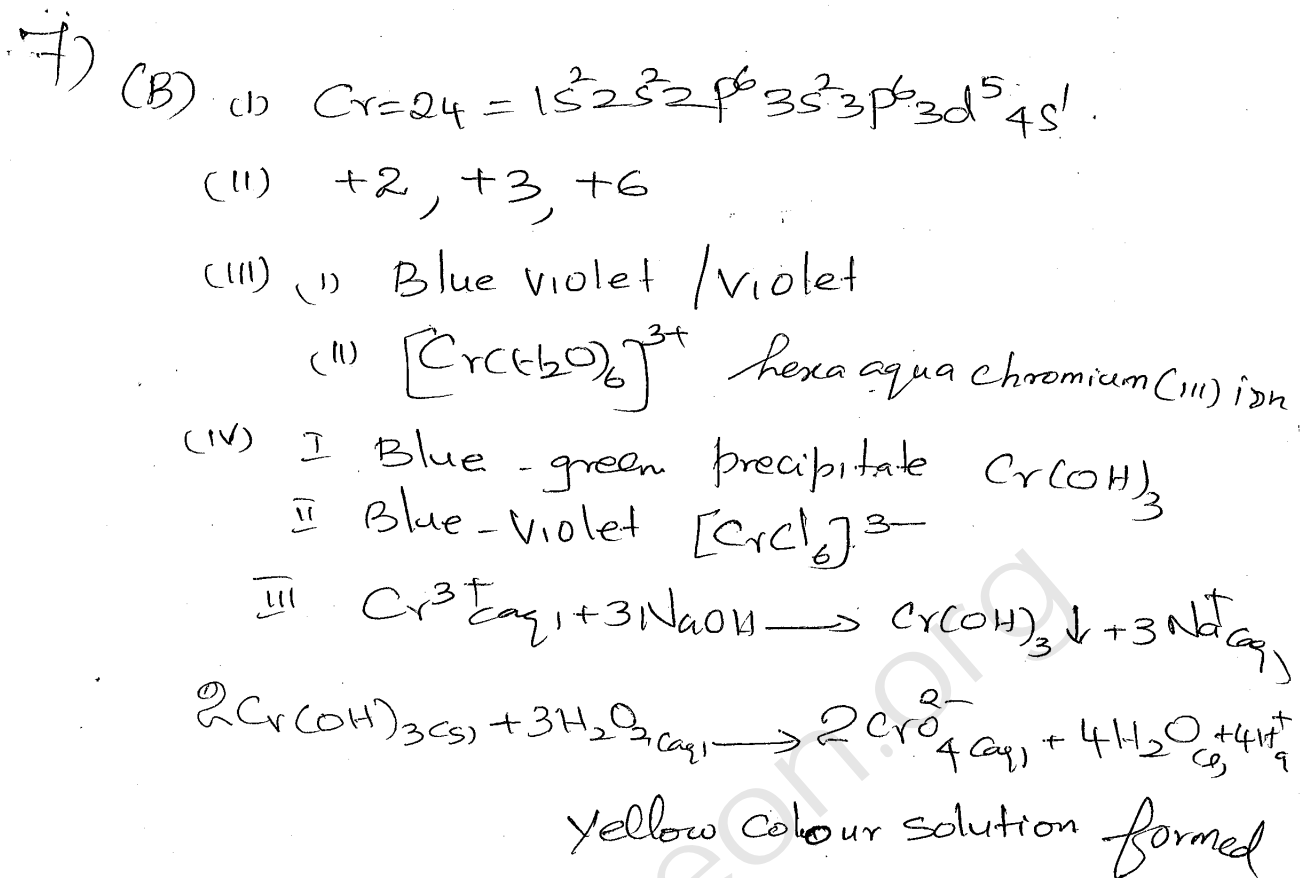 7)
(B) (I) Cr=24 = 1s²2s²2p⁶3s²3p⁶3d⁵4s¹.
(II) +2, +3, +6
(III) (I) Blue violet / violet
(II) [Cr(H₂O)₆]³⁺ hexa aqua chromium (III) ion
(IV) I Blue - green precipitate Cr(OH)₃
II Blue - Violet [CrCl₆]³⁻
III Cr³⁺(aq) + 3NaOH → Cr(OH)₃ ↓ + 3Na⁺(aq)
2Cr(OH)₃(s) + 3H₂O₂(aq) → 2CrO₄²⁻(aq) + 4H₂O(l) + 4H⁺q
Yellow colour solution formed
eon.org